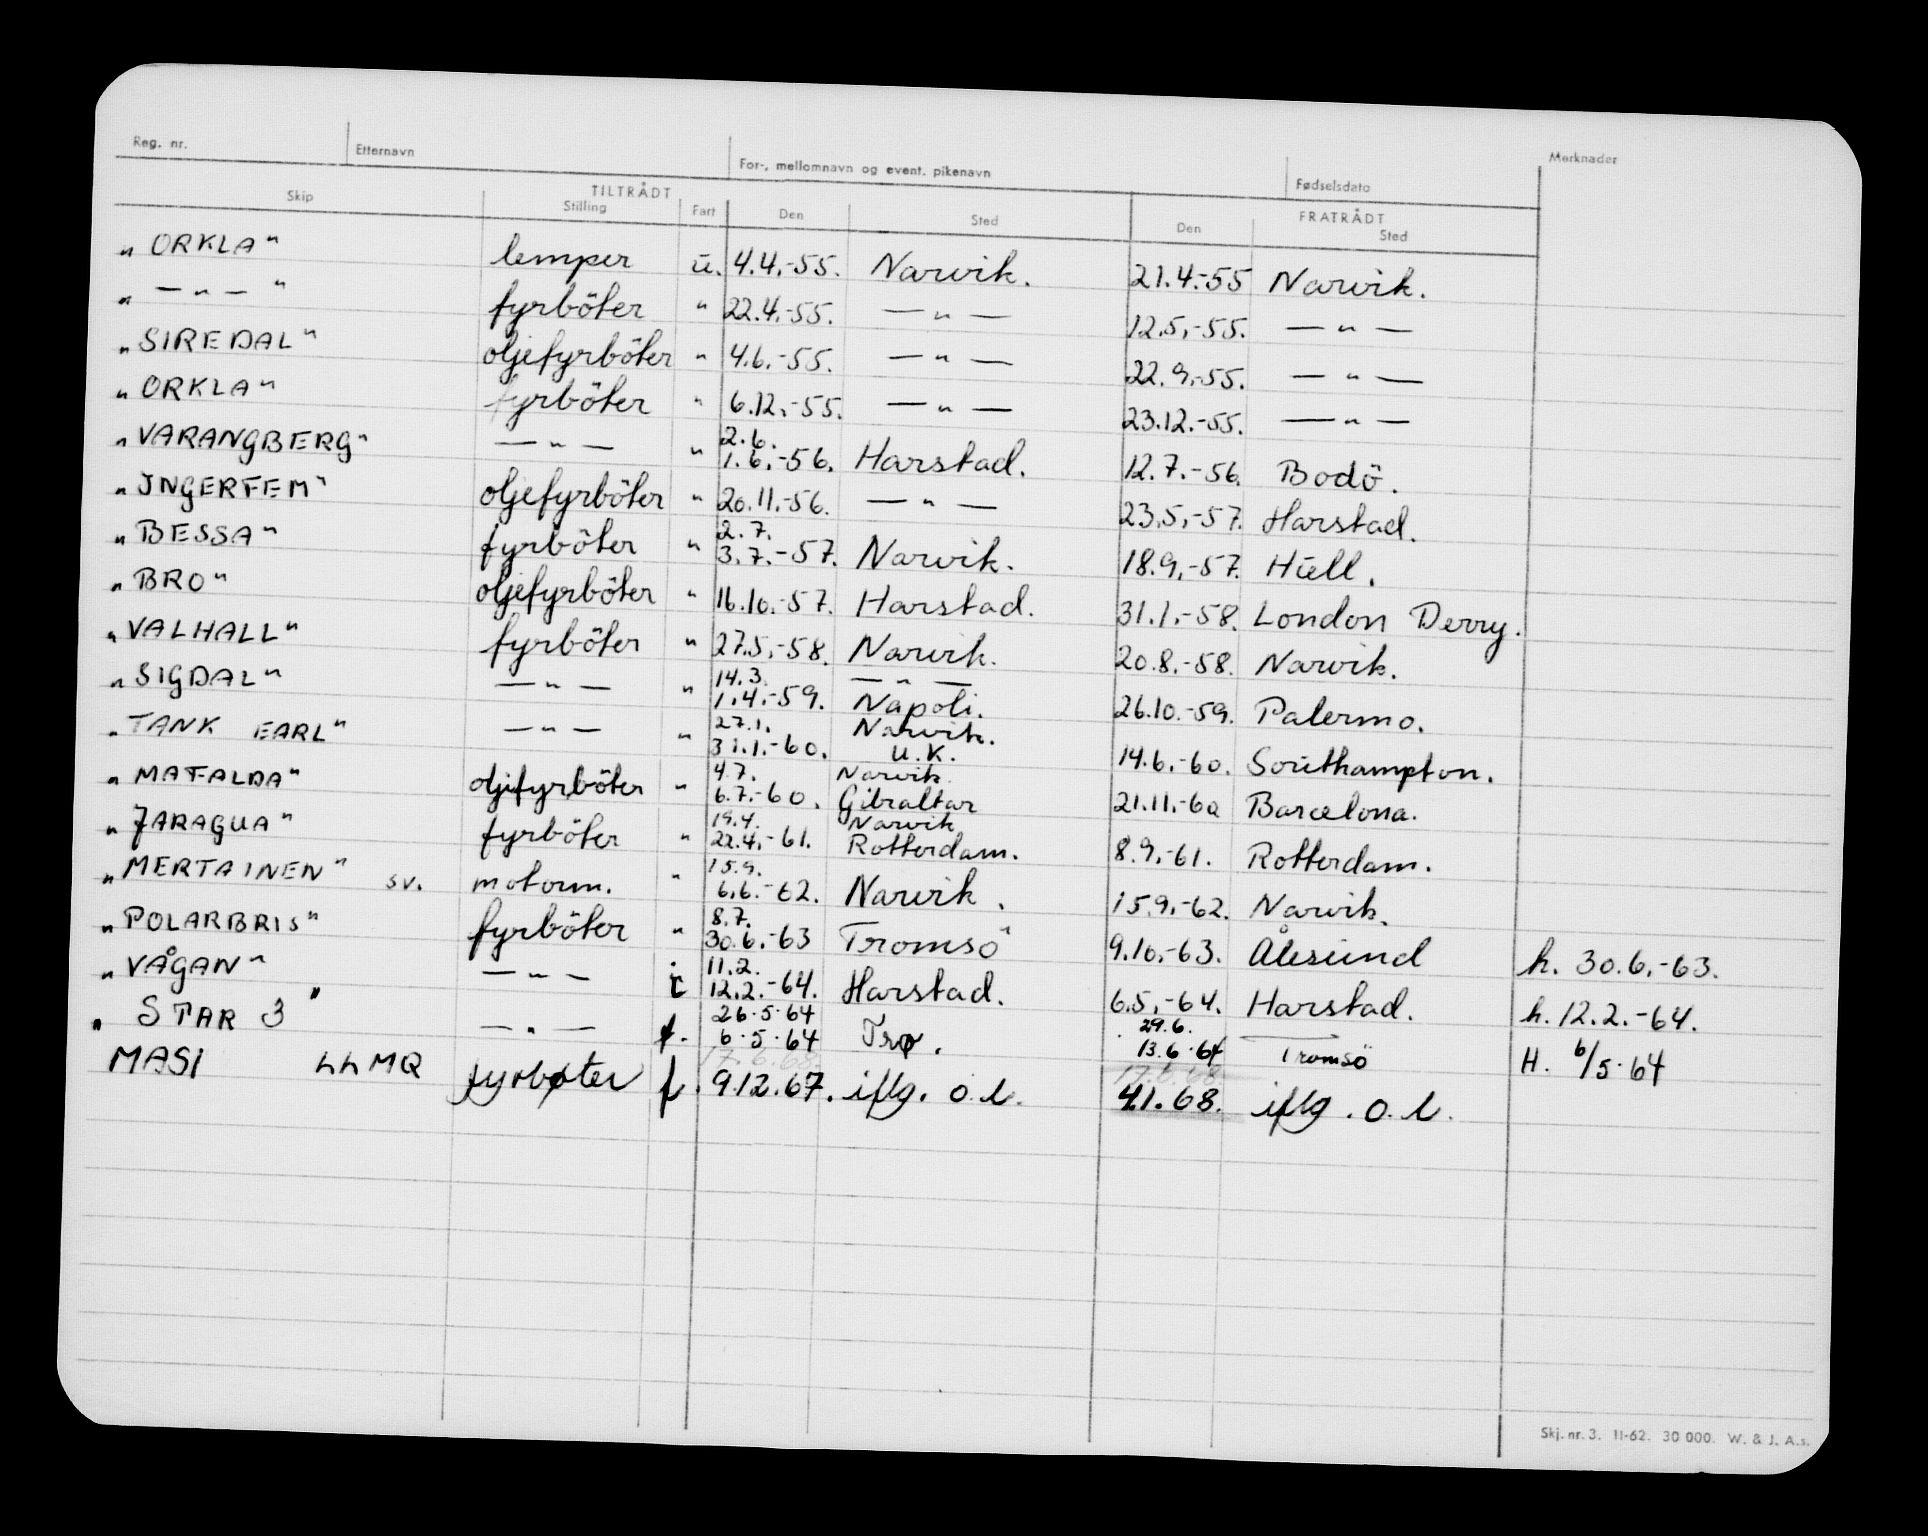 Reg. nr. Etternavn For-, mellomnavn og event. pikenavn Fødselsdato Merknader
TILTRÅDT FRATRÅDT
Skip Stilling Fart Den Sted Den Sted
„ ORKLA" lemper u. 4.4.-55. Narvik. 21.4.-55 Narvik.
„ — " — " fyrböter " 22.4.-55. — " — 12.5.-55. — " —
„ SIREDAL" oljefyrböter " 4.6.-55. — " — 22.9.-55. — " —
„ ORKLA" fyrböter " 6.12.-55. — " — 23.12.-55. — " —
2.6.
„ VARANGBERG" — " — " 1.6.-56. Harstad. 12.7.-56. Bodö.
„ INGERFEM" oljefyrböter " 20.11.-56. — " — 23.5.-57. Harstad.
2.7.
„ BESSA" fyrböter " 3.7.-57. Narvik. 18.9.-57. Hull.
„ BRO" oljefyrböter " 16.10.-57. Harstad. 31.1.-58. London Derry.
„ VALHALL" fyrböter " 27.5.-58. Narvik. 20.8.-58. Narvik.
14.3. — " —
„ SIGDAL" — " — " 1.4.-59. Napoli. 26.10.-59. Palermo.
27.1. Narvik.
„ TANK EARL" — " — " 31.1.-60. U.K. 14.6.-60. Southampton.
4.7. Narvik
„ MAFALDA" oljefyrböter " 6.7.-60. Gibraltar 21.11.-60 Barcelona.
19.4. Narvik
„ JARAGUA" fyrböter " 22.4.-61. Rotterdam. 8.9.-61. Rotterdam.
15.9.
„ MERTAINEN" sv. motorm. " 6.6.-62. Narvik. 15.9.-62. Narvik.
8.7.
„ POLARBRIS" fyrböter " 30.6.-63 Tromsö 9.10.-63. Ålesund h. 30.6.-63.
11.2.
„ VÅGAN" — " — i 12.2.-64. Harstad. 6.5.-64. Harstad. h. 12.2.-64.
26.5.64 29.6.
„ STAR 3" — " — f. 6.5.64 Trø. 13.6.64 Tromsö H. 6/5.64
MASI LLMQ fyrbøter f. 9.12.67. iflg. o.l. 4.1.68. iflg. o.l.
Skj. nr. 3. 11-62. 30 000. W. & J. A.s.